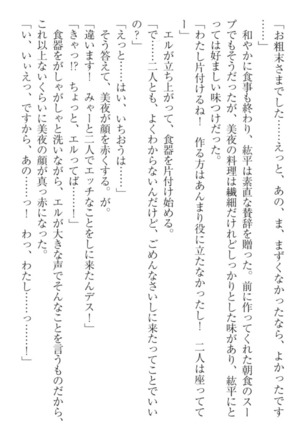 「お粗末さまでした……えっと、あの、ま、まずくなかったなら、よかったです」
和やかに食事も終わり、紘平は素直な賛辞を贈った。前に作ってくれた朝食のスー
プでもそうだったが、美夜の料理は繊細だけれどしっかりとした味があり、紘平にと
っては好ましい味つけだった。
「わたし片付けるね！　作る方はあんまり役に立たなかったし！　二人は座ってて
」
エルが立ち上がって、食器を片付け始める。
「で……二人とも、よくわからないんだけど、ごめんなさいしに来たってことでいい
の？」
「えっと……はい、いちおうは……」
そう答えて、美夜が顔を赤くする。が、
「違います！　みゃーと二人でエッチなことをしに来たんデス！」
「きゃっ!?　ちょっと、エルってば……！」
食器をがしゃがしゃと洗いながら、エルが大きな声でそんなことを言うものだから、
これ以上ないくらいに美夜の顔が真っ赤になった。
「い、いいえっ、ですから、あの……っ！　わっ、わたし……っ……！」